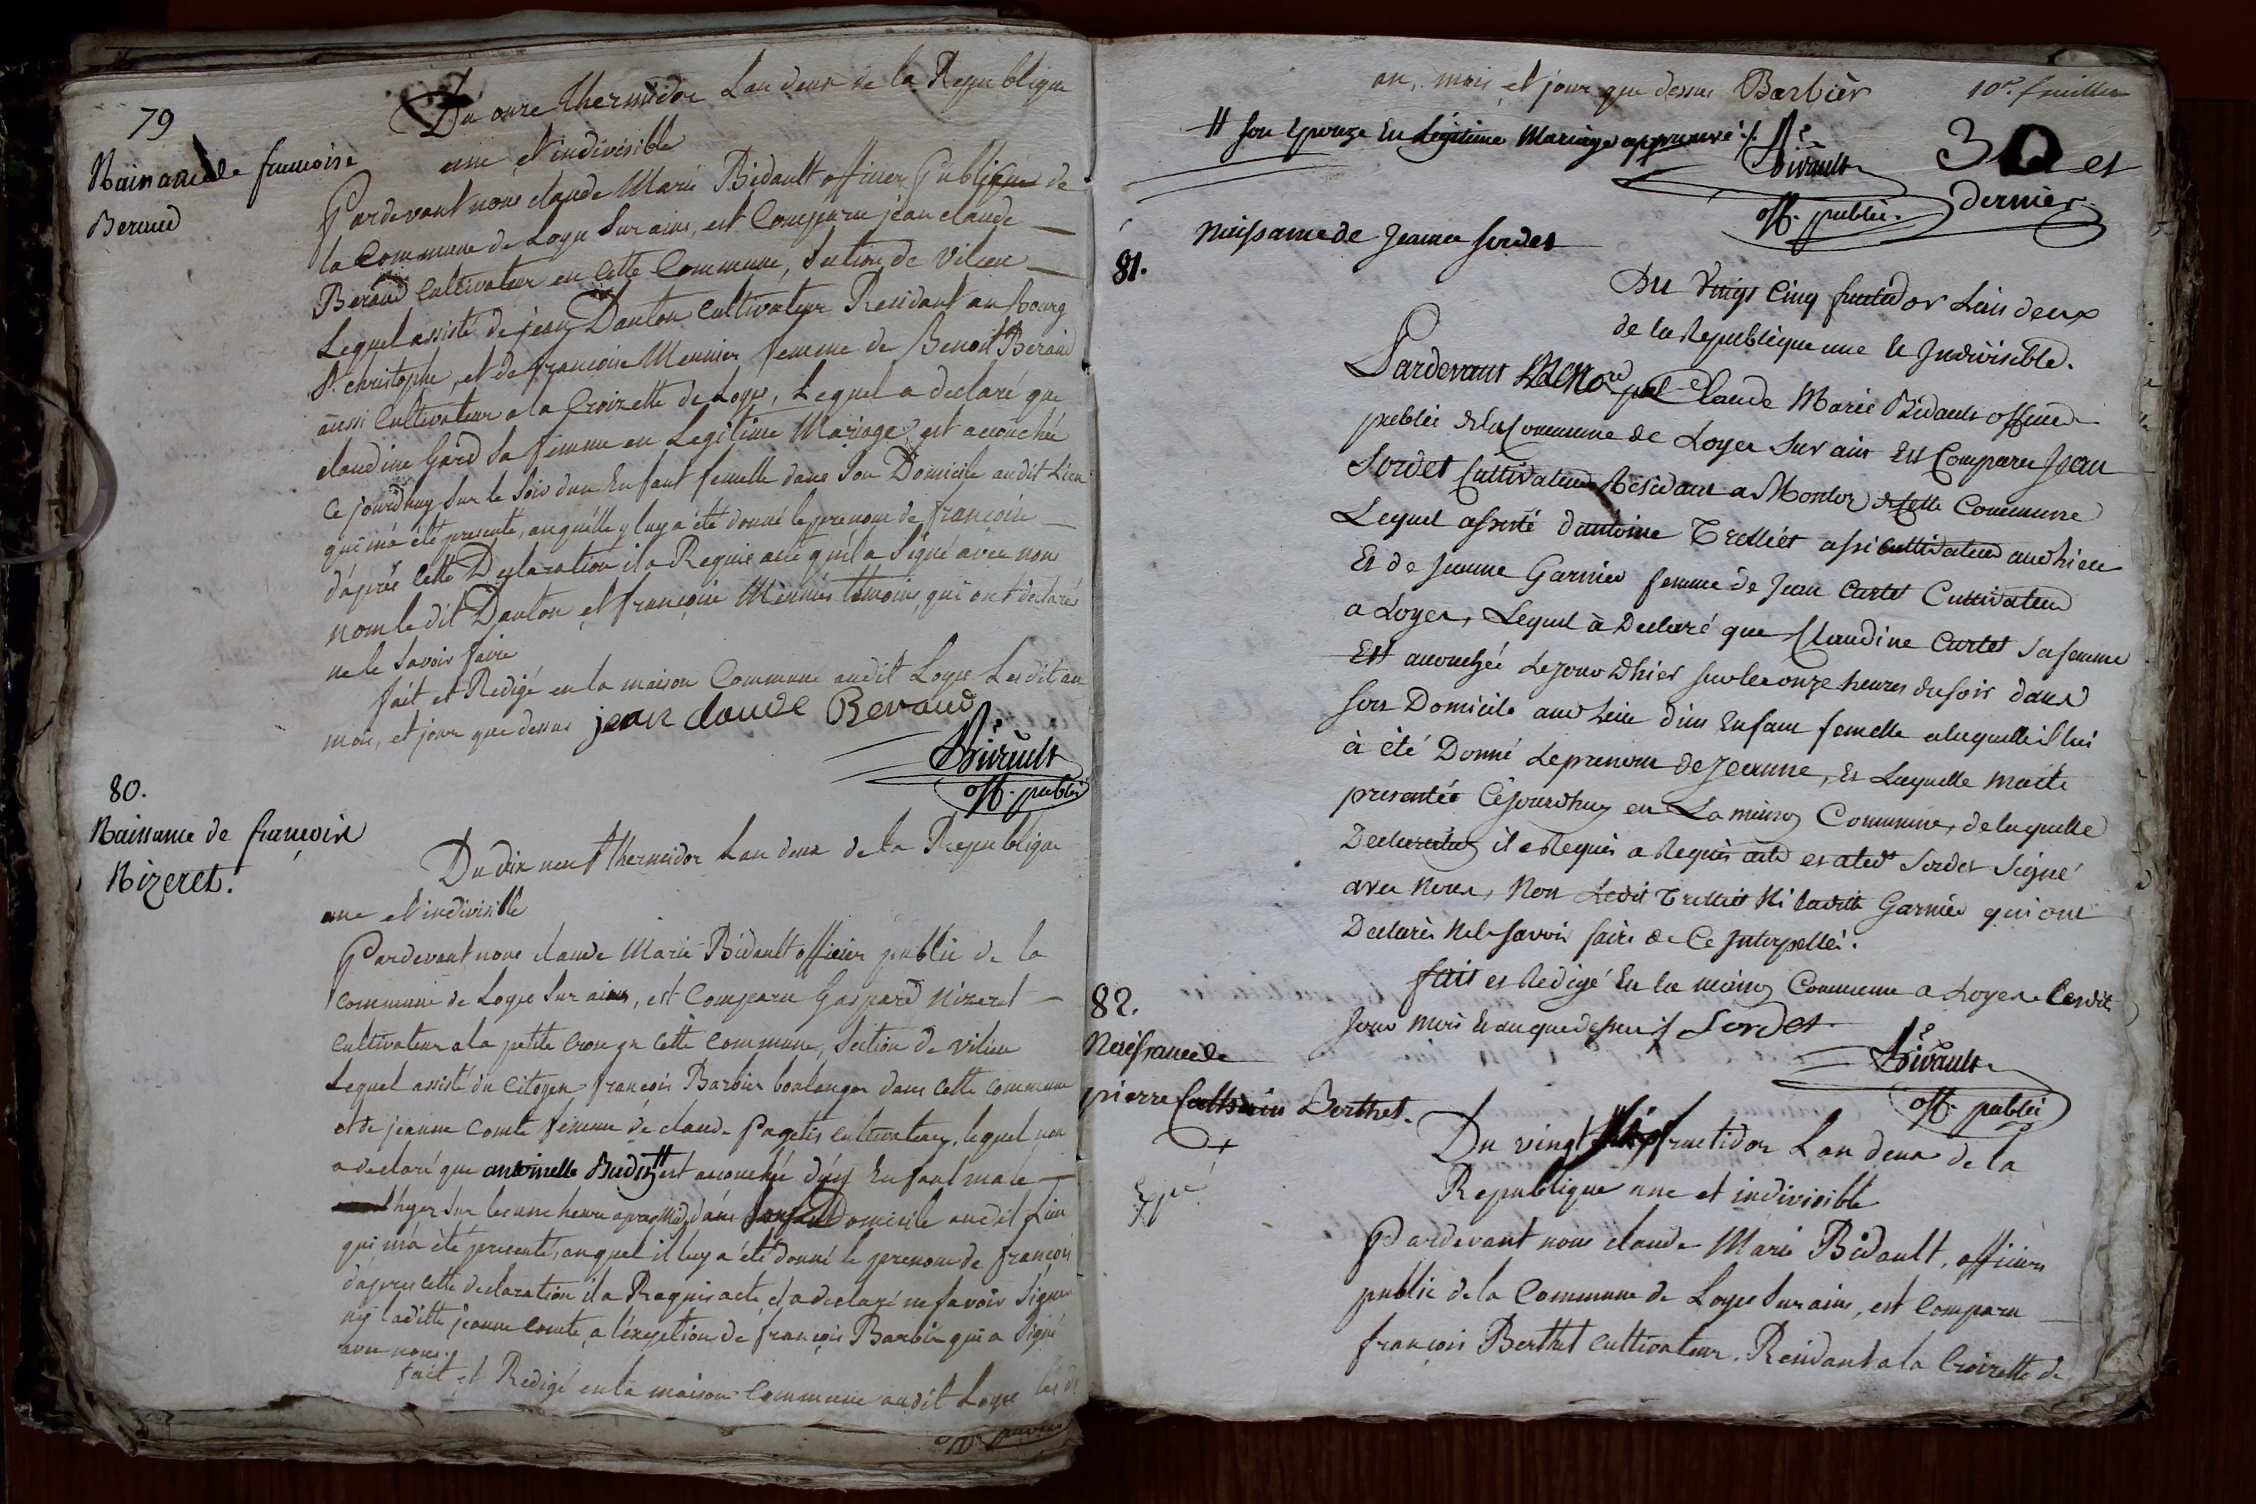 79
Naissance de francoise
Beraud
Du onze thermidor Lan deux de la Republique
une et indivisible
Pardevant nous claude Marie Bidault officier Publique de
la Commune de Loye Sur ains, est Comparu jean claude
Beraud Cultivateur en Cette Commune, Section de Vilieu
Lequel assisté de jean Danton Cultivateur Residant au bourg
St christophe, et de francoise Meunier femme de Benoit Beraud
aussi Cultivateur a la Croizette de Loyes, Lequel a declaré que
claudine Gard Sa femme en Legitime Mariage, est accouchée
Ce jourdhuy Sur le Soir dun Enfant femelle dans Son Domicile audit Lieu
qui m'a été presenté, auquelle y luy a été donné le prenom de francoise
d'apres Cette Declaration il a Requis acte qu'il a Signé avec nous
non le dit Danton et francoise Meunier temoins, qui ont declarés
ne le Savoir faire
fait et Redigé en la maison Commune audit Loyes Lesdit an
mois, et jour que dessus jean claude Beraud
Bidault
off. public
80.
Naissance de francois
Nizeret.
Du dix neuf thermidor Lan deux de la Republique
une et indivisible
Pardevant nous claude Marie Bidault officier public de la
commune de Loyes Sur ains, est Comparu Gaspard Nizeret
Cultivateur a la petite Croze en Cette Commune, Section de Vilieu
Lequel assisté du Citoyen francois Barbier boulanger dans Cette Commune
et de jeanne Comte femme de claude Pagetis Cultivateur, lequel nous
a declaré que antoinette Budin # est accouchée d'un Enfant male
hyer Sur les une heure apres Midy dans Domicile audit Lieu
qui m'a été presenté, auquel il luy a été donné le prenom de francois
d'apres cette declaration il a Requis acte, et a declaré ne savoir Signer
ny laditte jeanne Comte, a l'exeption de françois Barbier qui a Signé
avec nous.
fait et Redigé en la maison Commune audit Loyes les dt
an, mois, et jour que dessus Barbier
10e feuillet
# son Epouze En Légitime Mariage approuvé ./.
Bidault
off. public
30 et
dernier.
Naissance de Jeanne Sordet
81.
Du Vingt Cinq fructidor L'an deux
de la Republique une Et Indivisible.
Pardevant Claude Marie Bidault officier
public de la Commune de Loyes Sur ain Est Comparu Jean
Sordet Cultivateur Residant a Monlor de Cette Commune
Lequel assisté d'antoine Trolliet assi Cultivateur aud Lieu
Et de Jeanne Garnier femme de Jean Cartet Cultivateur
a Loyes, Lequel à Declaré que Claudine Cartet Sa femme
Est accouchée Le jour Dhier Sur les onze heures du Soir dans
Son Domicile aud Lieu d'un Enfant femelle a laquelle il lui
à été Donné Le prenom de Jeanne, Et Laquelle m'a été
presentée Cejourdhuy en La maison Commune, de laquelle
Declaration il a Requis a Requis acte et a led Sordet Signé
avec Nous, Non Ledit Trolliet Ni Laditte Garnier qui ont
Declarés Ne le Savoir faire de Ce Interpellés.
fait et Redigé En la maison Commune a Loyes Lesdit
Jour Mois Et an que dessus ./. Sordet
Bidault
off. public
82.
Naissance de
pierre Berthet.
Du vingt fructidor Lan deux de la
Republique une et indivisible
Pardevant nous claude Marie Bidault, officier
public de la Commune de Loyes Sur ains, est Comparu
françois Berthet Cultivateur, Residant a la Croizette de